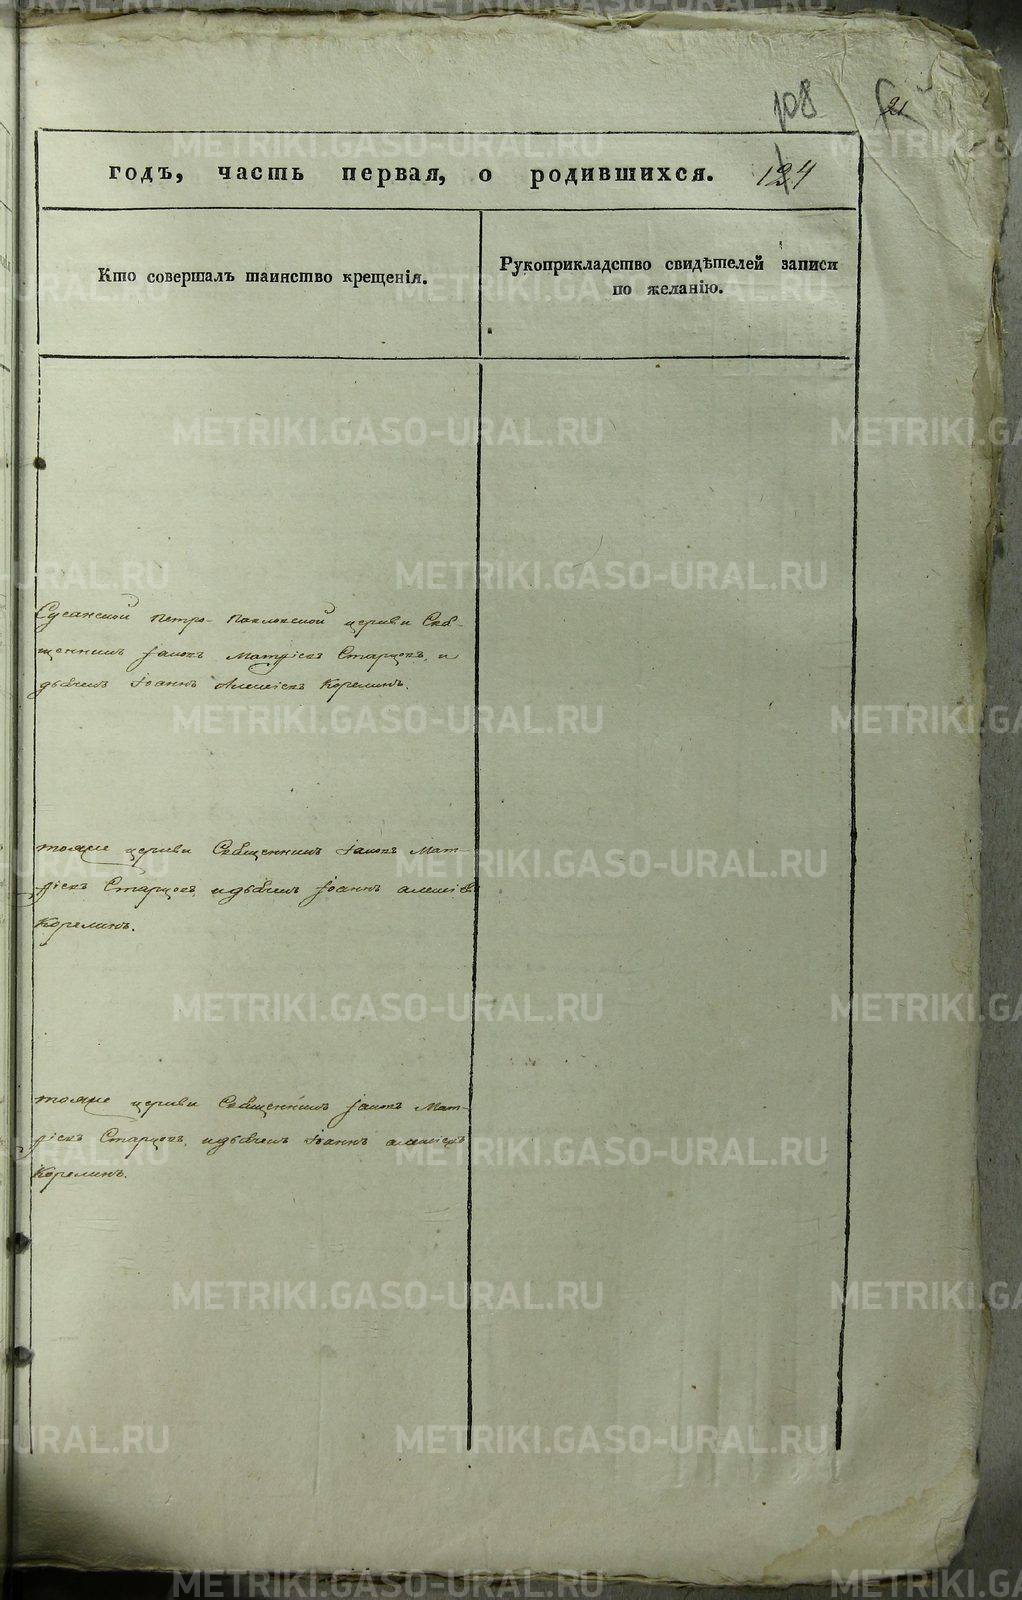 108
124
годъ, часть первая, о родившихся.
Кто совершалъ таинство крещенія.
Рукоприкладство свидѣтелей записи
по желанію.
Сусанской Петро-Павловской церкви Свя-
щенникъ Іаковъ Старцовъ, и
дьячекъ Іоаннъ Корелинъ.
тояже церкви Священникъ Іаковъ
Старцовъ, и дьячекъ Іоаннъ
Корелинъ.
тояже церкви Священникъ Іаковъ
Старцовъ, и дьячекъ Іоаннъ
Корелинъ.
METRIKI.GASO-URAL.RU